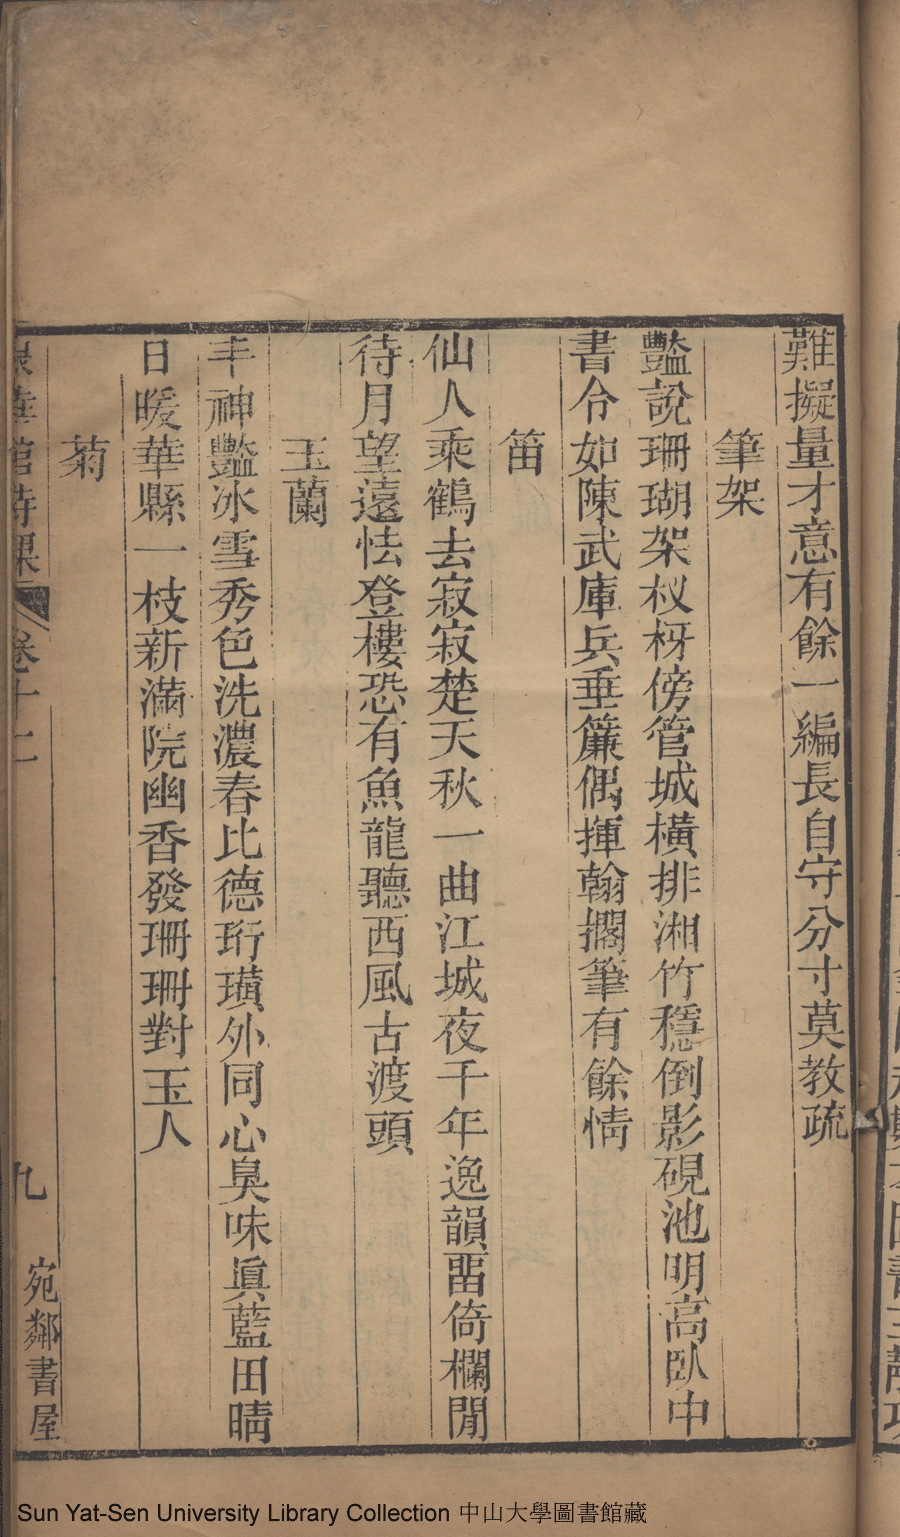 難擬量才意有餘一編長自守分寸莫教疏
筆架
豔說珊瑚架杈枒傍管城橫排湘竹穩倒影硯池明高臥中
書令如陳武庫兵垂簾偶揮翰擱筆有餘情
笛
仙人乘鶴去寂寂楚天秋一曲江城夜千年逸韻畱倚欄閒
待月望遠怯登樓恐有魚龍聽西風古渡頭
玉蘭
丰神豔冰雪秀色洗濃春比德珩璜外同心臭味眞藍田晴
日暖華縣一枝新滿院幽香發珊珊對玉人
菊
館詩課 卷十二 九 宛鄰書屋
Sun Yat-Sen University Library Collection 中山大學圖書館藏